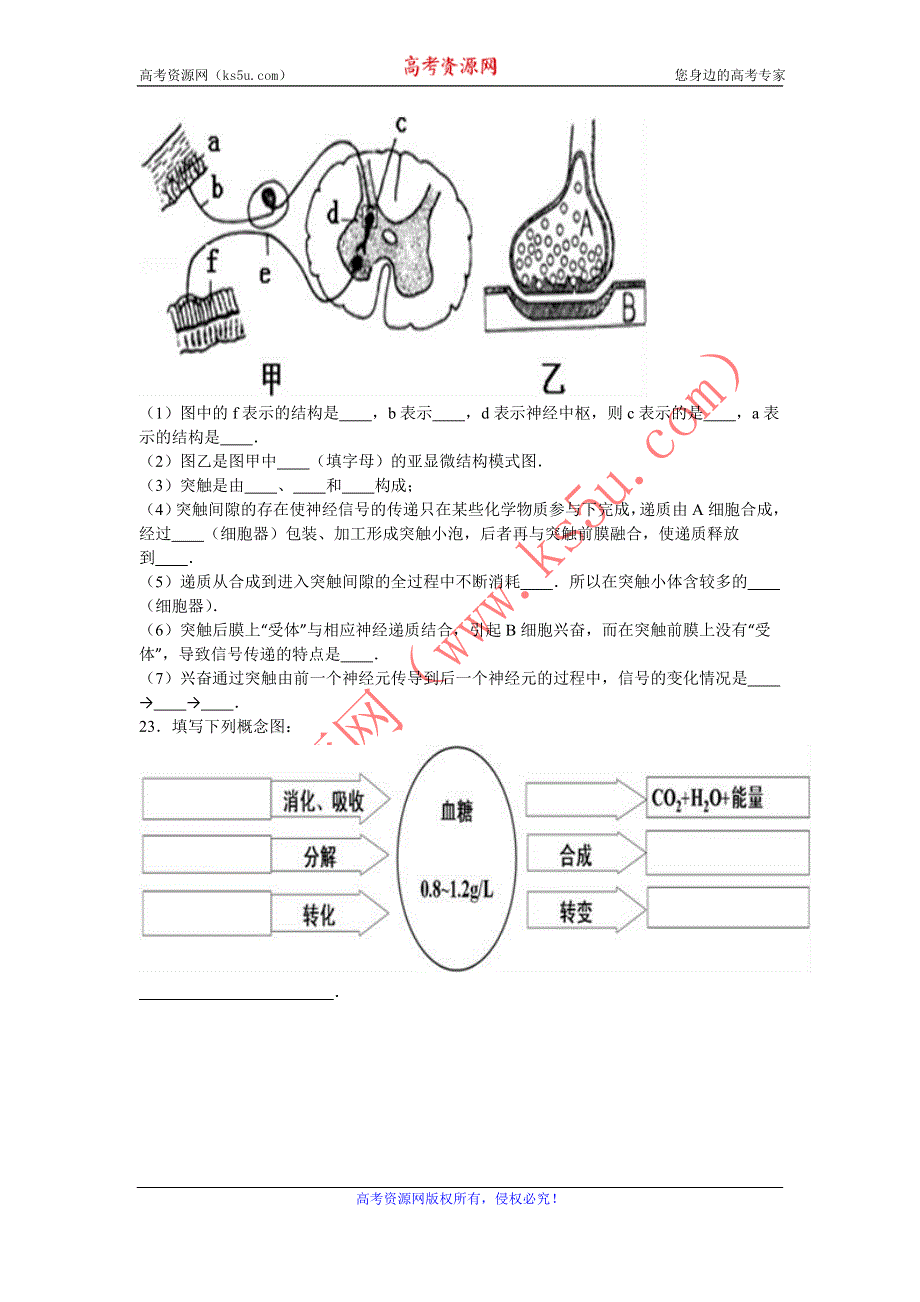 高考资源网（ks5u.com）
高考资源网
您身边的高考专家
a
b
c
d
e
f
A
B
甲
乙
（1）图中的 f 表示的结构是____，b 表示____，d 表示神经中枢，则 c 表示的是____，a 表
示的结构是____．
（2）图乙是图甲中____（填字母）的亚显微结构模式图．
（3）突触是由____、____和____构成；
（4）突触间隙的存在使神经信号的传递只在某些化学物质参与下完成，递质由 A 细胞合成，
经过____（细胞器）包装、加工形成突触小泡，后者再与突触前膜融合，使递质释放
到____．
（5）递质从合成到进入突触间隙的全过程中不断消耗____．所以在突触小体含较多的____
（细胞器）．
（6）突触后膜上“受体”与相应神经递质结合，引起 B 细胞兴奋，而在突触前膜上没有“受
体”，导致信号传递的特点是____．
（7）兴奋通过突触由前一个神经元传导到后一个神经元的过程中，信号的变化情况是____
→____→____．
23．填写下列概念图：
消化、吸收
分解
转化
血糖
0.8~1.2g/L
CO₂+H₂O+能量
合成
转变
______________________．
网（www.ks5u.com）
高考资源网版权所有，侵权必究！